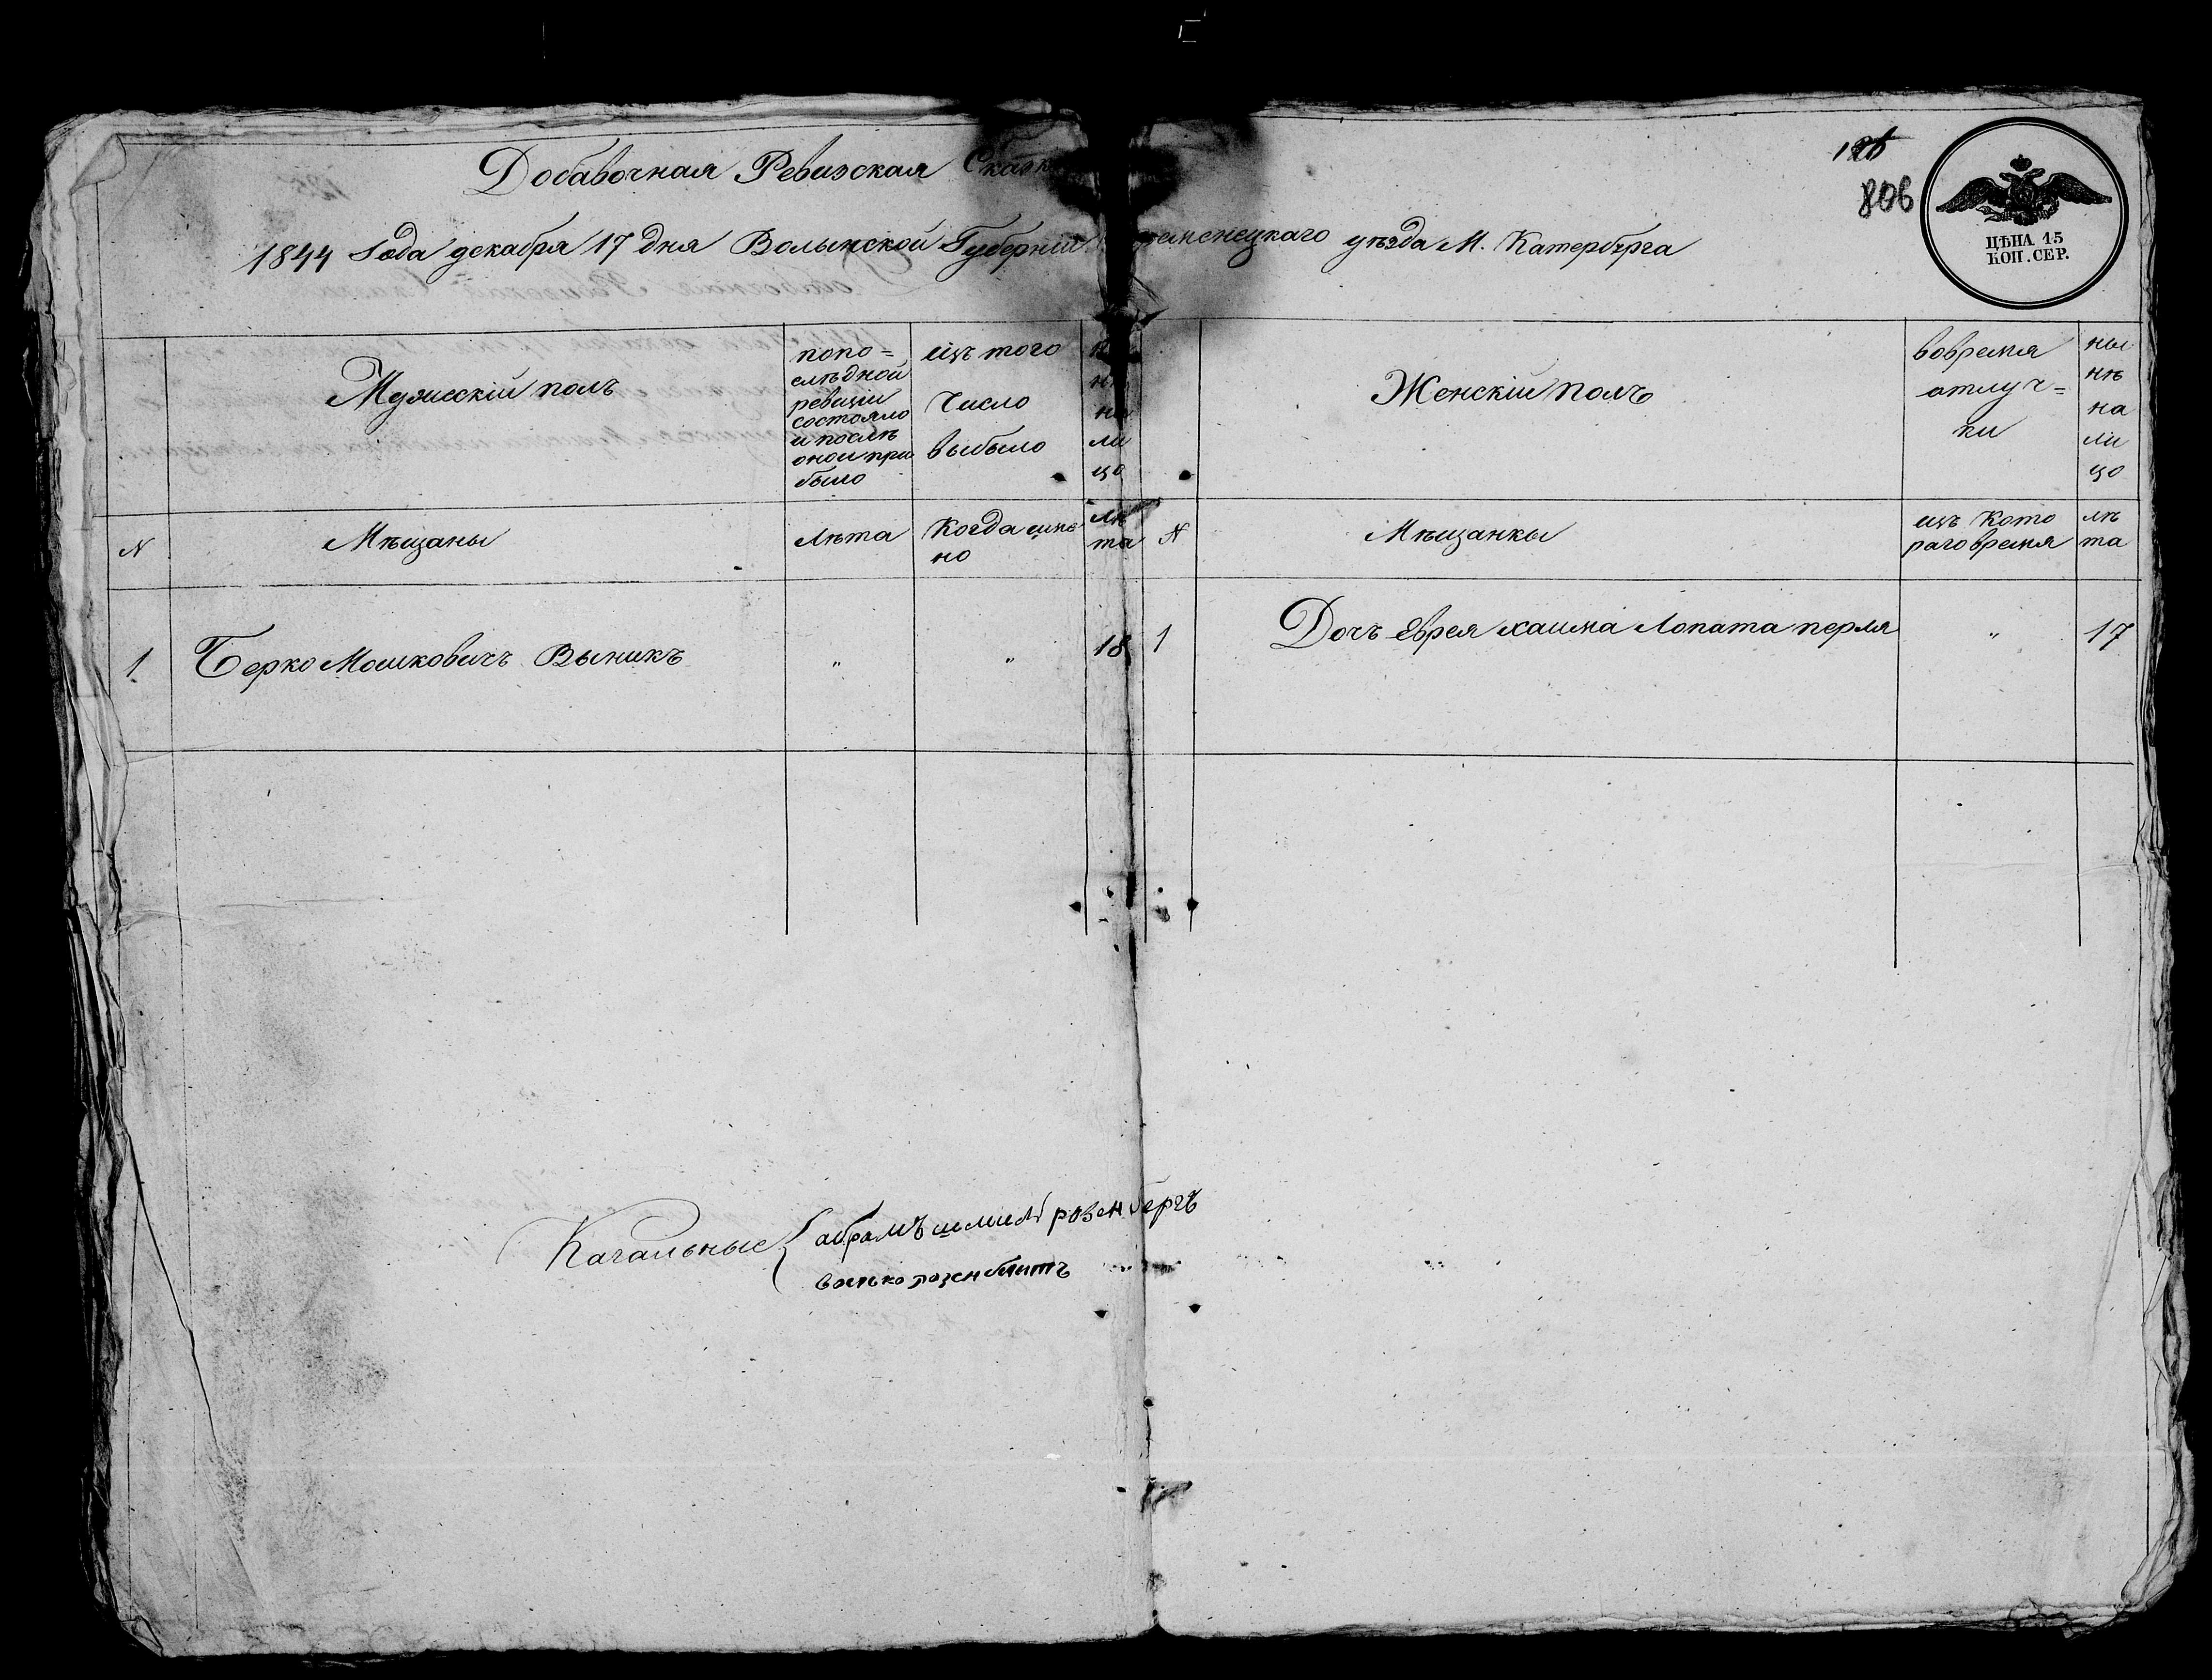 Добавочная Ревизская Сказка
1844 Года декабря 17 дня Волынской Губернии еменецкаго уезда М. Катербърга
806
ЦѢНА 15
КОП. СЕР.
Мужескій полъ
попо=
слѣдной
ревизіи
состояло
и послѣ
оной при
было
изъ того
число
выбыло
ны
нѣ
на
ли
цо
Женскій полъ
вовремя
отлуч=
ки
ны
нѣ
на
ли
цо
N
Мѣщаны
Лѣта
Когда имѣ
но
Лѣ
та
N
Мѣщанкы
изъ Кото
раго время
лѣ
та
1
Берко Мошковичъ Выникъ
"
"
18
1
Дочъ Еврея хаима Лопата перля
"
17
Кагальные
абрамъ шмиль розенбергъ
волько розенблитъ